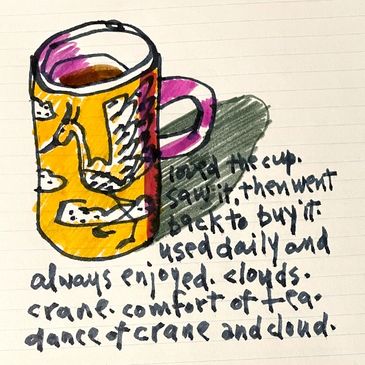 loved the cup.
saw it, then went
back to buy it.
used daily and
always enjoyed. clouds.
crane. comfort of tea.
dance of crane and cloud.